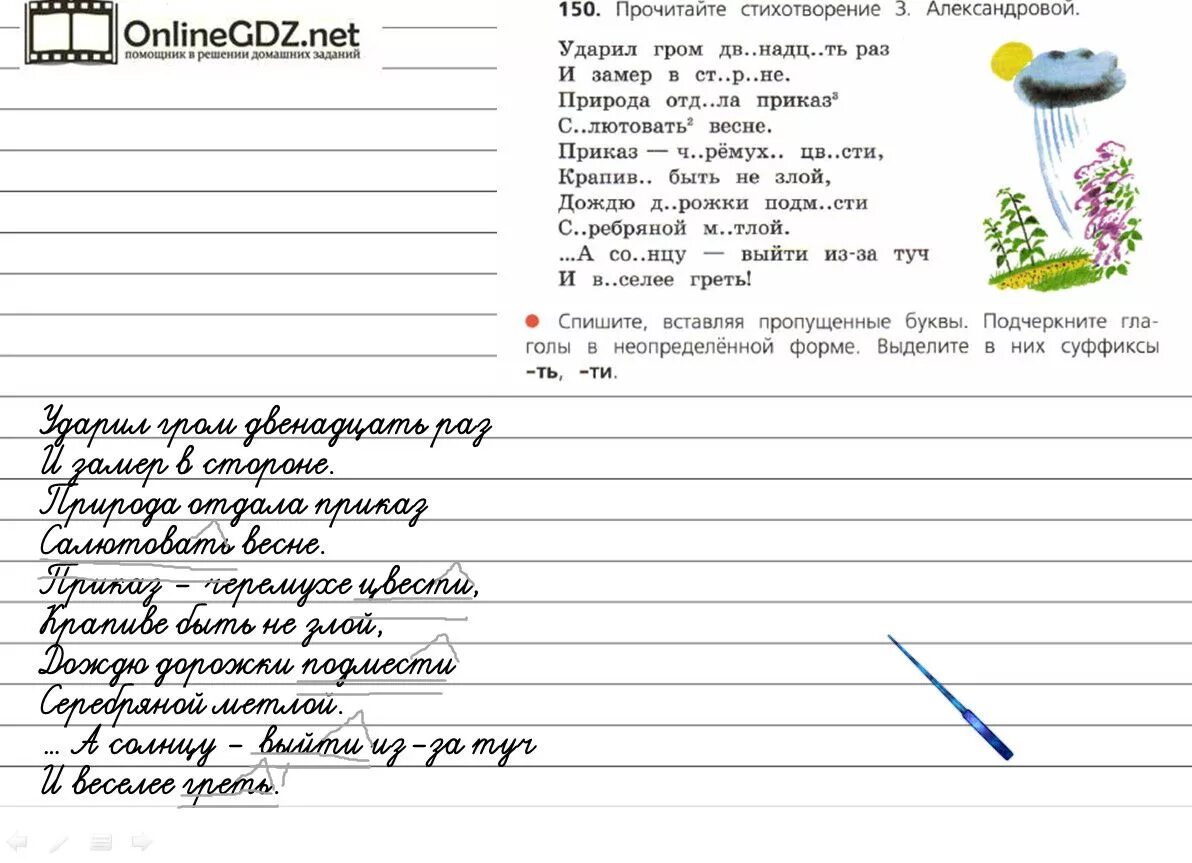 OnlineGDZ.net
помощник в решении домашних заданий
150. Прочитайте стихотворение З. Александровой.
Ударил гром дв..надц..ть раз
И замер в ст..р..не.
Природа отд..ла приказ³
С..лютовать² весне.
Приказ — ч..рёмух.. цв..сти,
Крапив.. быть не злой,
Дождю д..рожки подм..сти
С..ребряной м..тлой.
...А со..нцу — выйти из-за туч
И в..селее греть!
Спишите, вставляя пропущенные буквы. Подчеркните гла-
голы в неопределённой форме. Выделите в них суффиксы
-ть, -ти.
Ударил гром двенадцать раз
И замер в стороне.
Природа отдала приказ
Салютовать весне.
Приказ – черемухе цвести,
Крапиве быть не злой,
Дождю дорожки подмести
Серебряной метлой.
... А солнцу – выйти из-за туч
И веселее греть.